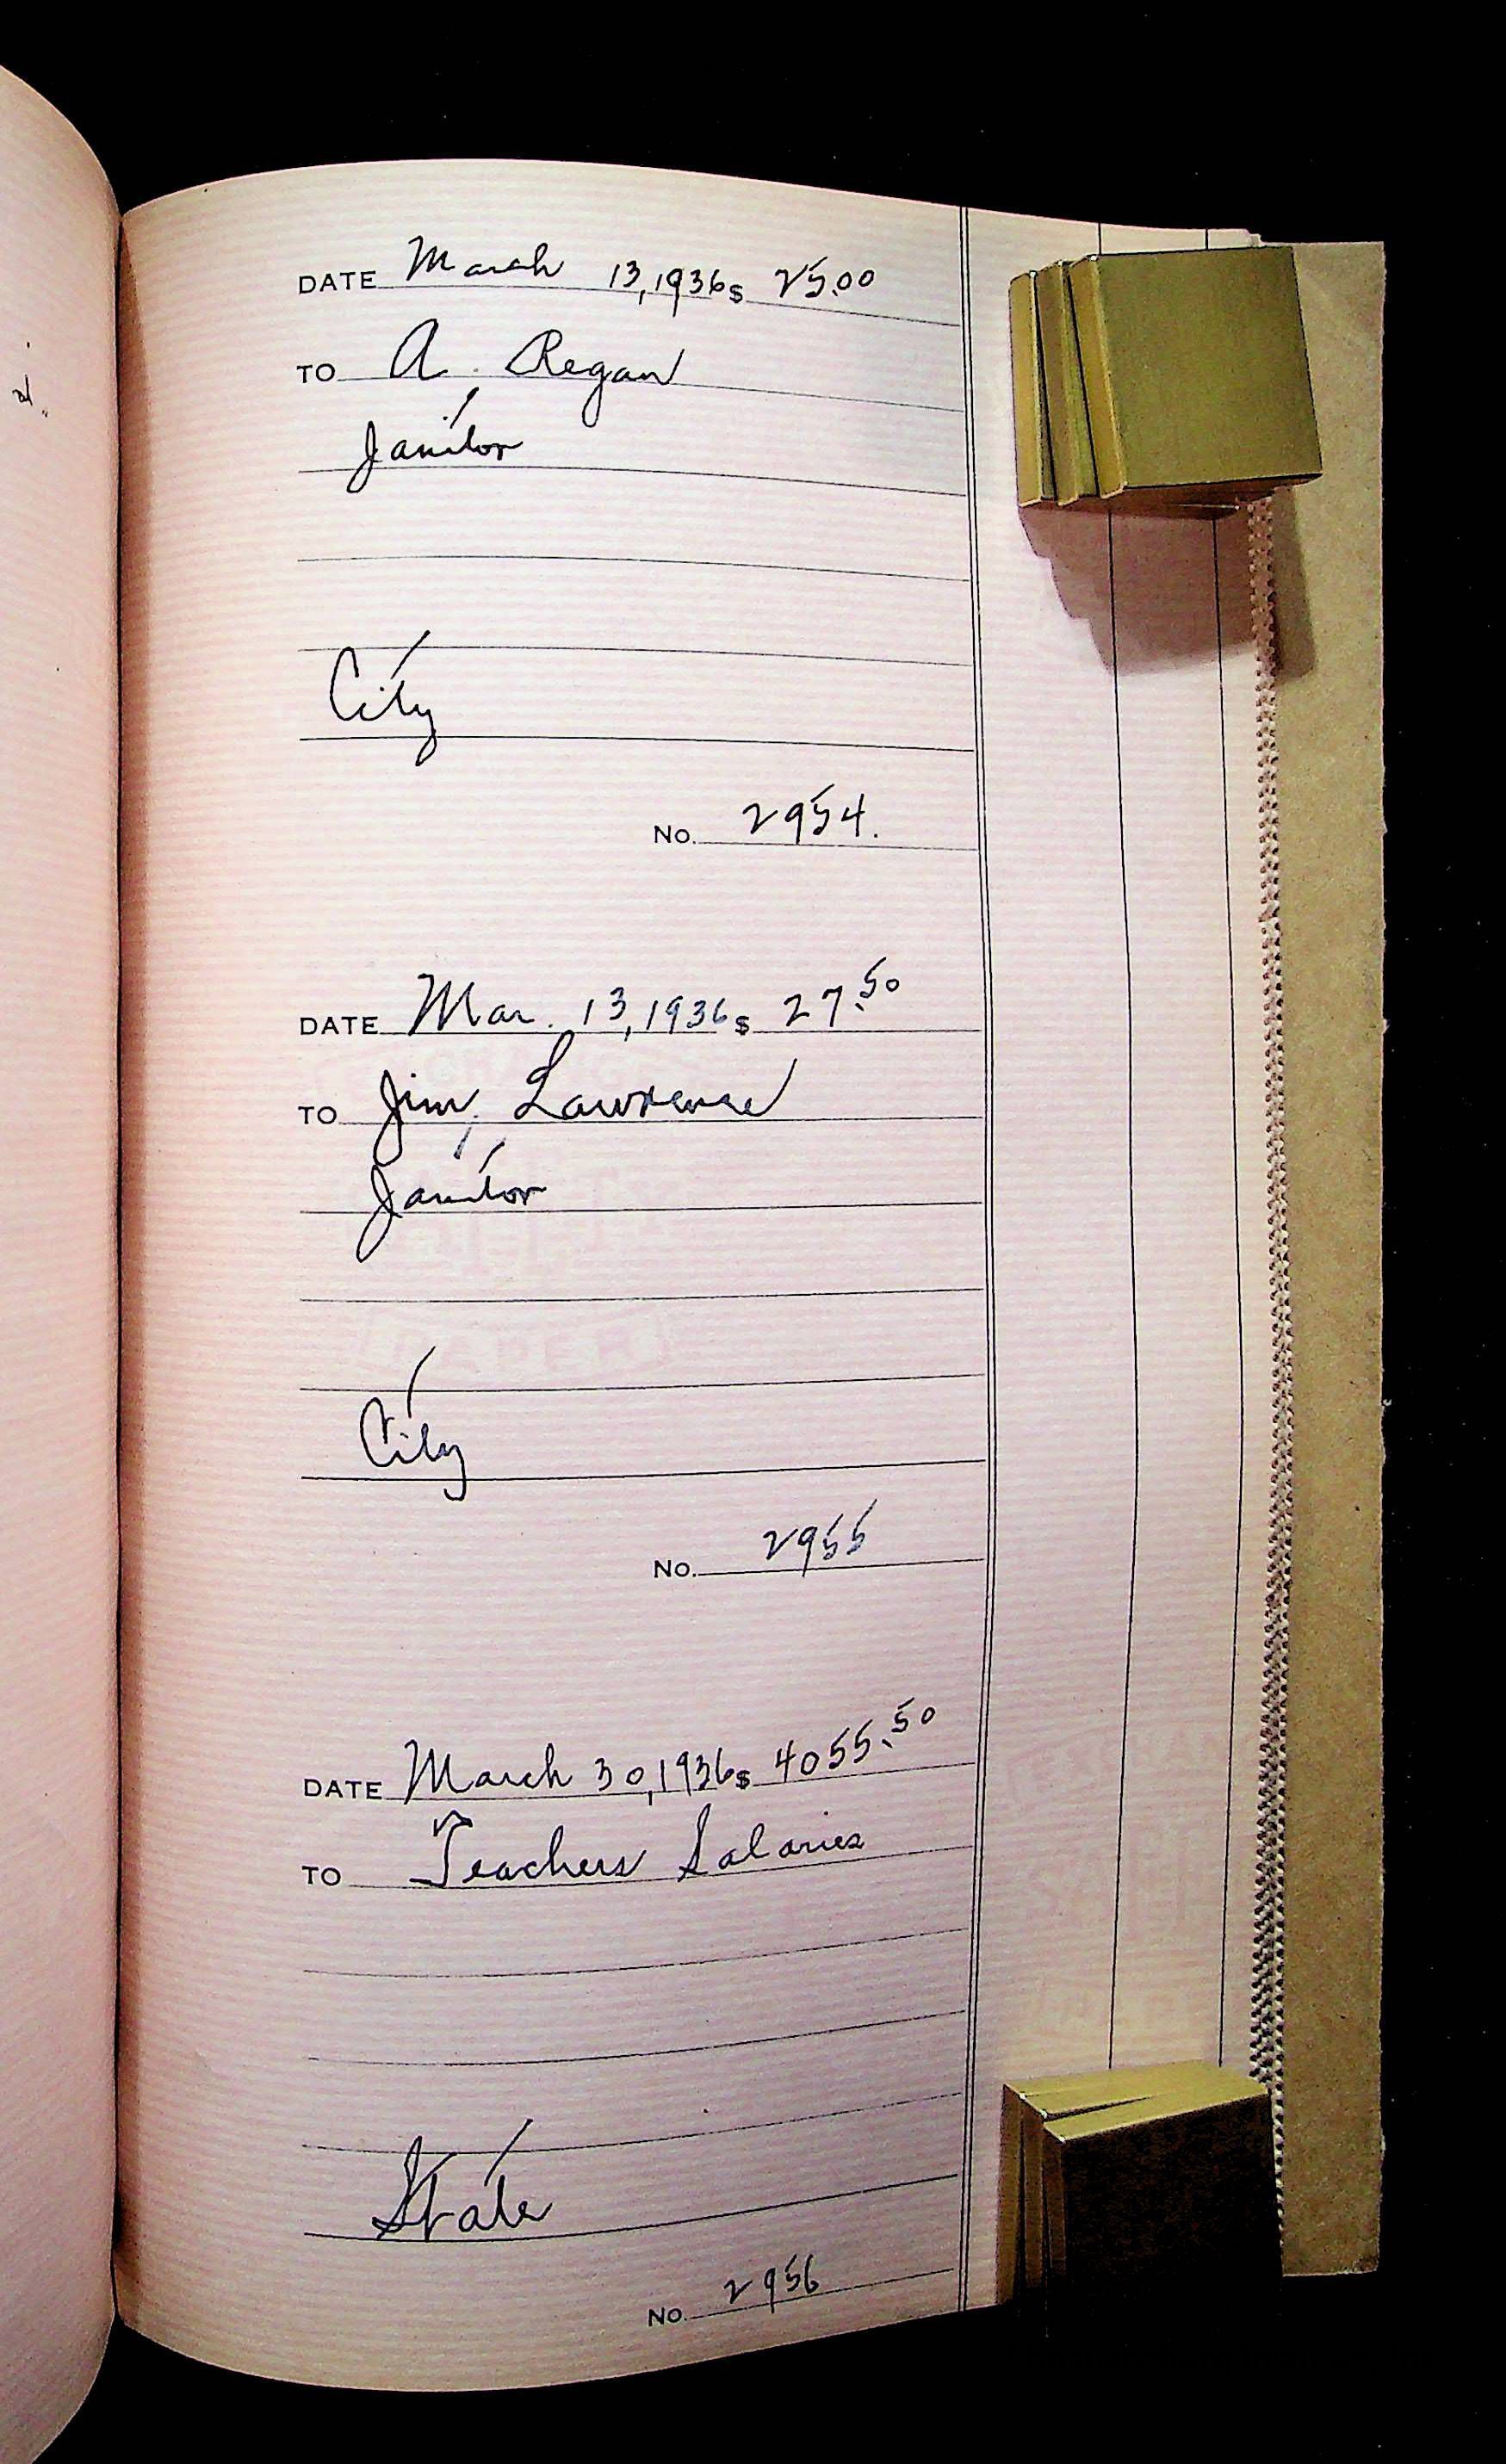 DATE March 13, 1936 $ 25.00
TO A. Regan
Janitor
City
No. 2954.
DATE Mar. 13, 1936 $ 27.50
TO Jim Lawrence
Janitor
City
No. 2955
DATE March 30, 1936 $ 4055.50
TO Teachers Salaries
State
No. 2956